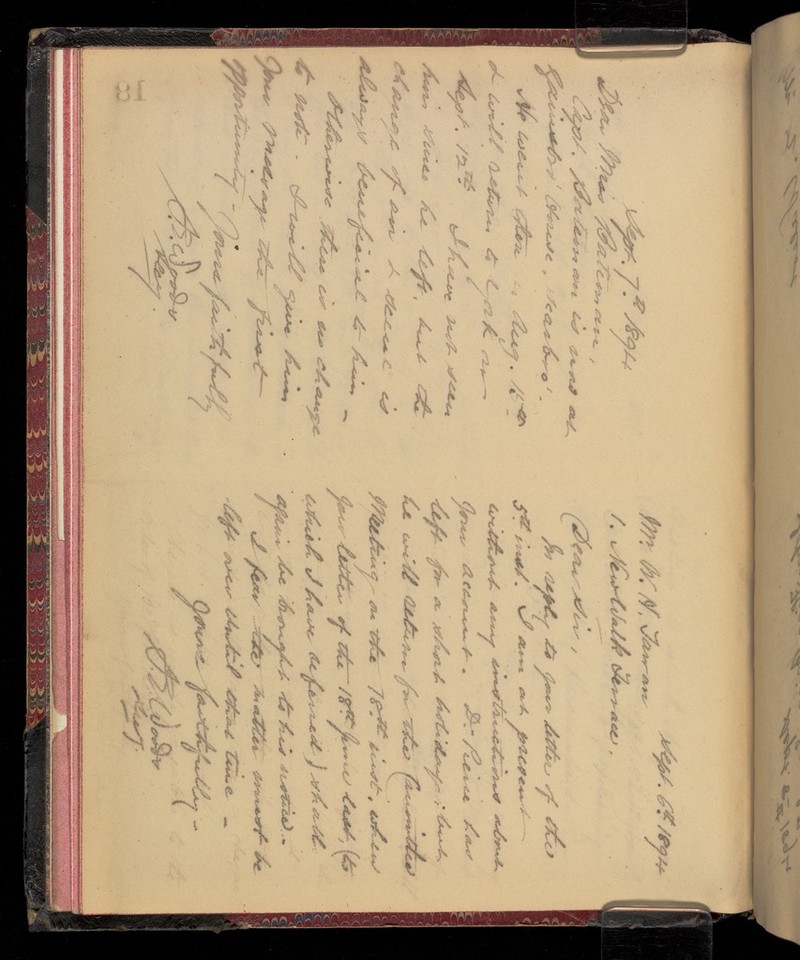 Sept. 7th 1894
Dear Miss Bateman,
Capt. Bateman is now at
House, Scarbro'.
He went there on Aug. 15th
& will return to York on
Sept. 12th. I have not seen
him since he left, but the
change of air & scene is
always beneficial to him -
Otherwise there is no change
to note - I will give him
your message the first
opportunity - Yours faithfully
Secy.
Sept. 6th 1894
Mr. W. H.
1. New Walk Terrace.
Dear Sir,
In reply to your letter of the
5th inst. I am at present
without any instructions about
your account. Dr. Pierce has
left for a short holiday; but
he will return for the Committee
Meeting on the 18th inst. when
your letter of the 18th June last, (to
which I have referred) shall
again be brought to his notice. -
I fear the matter must be
left over until that time -
Yours faithfully -
Secy.
18